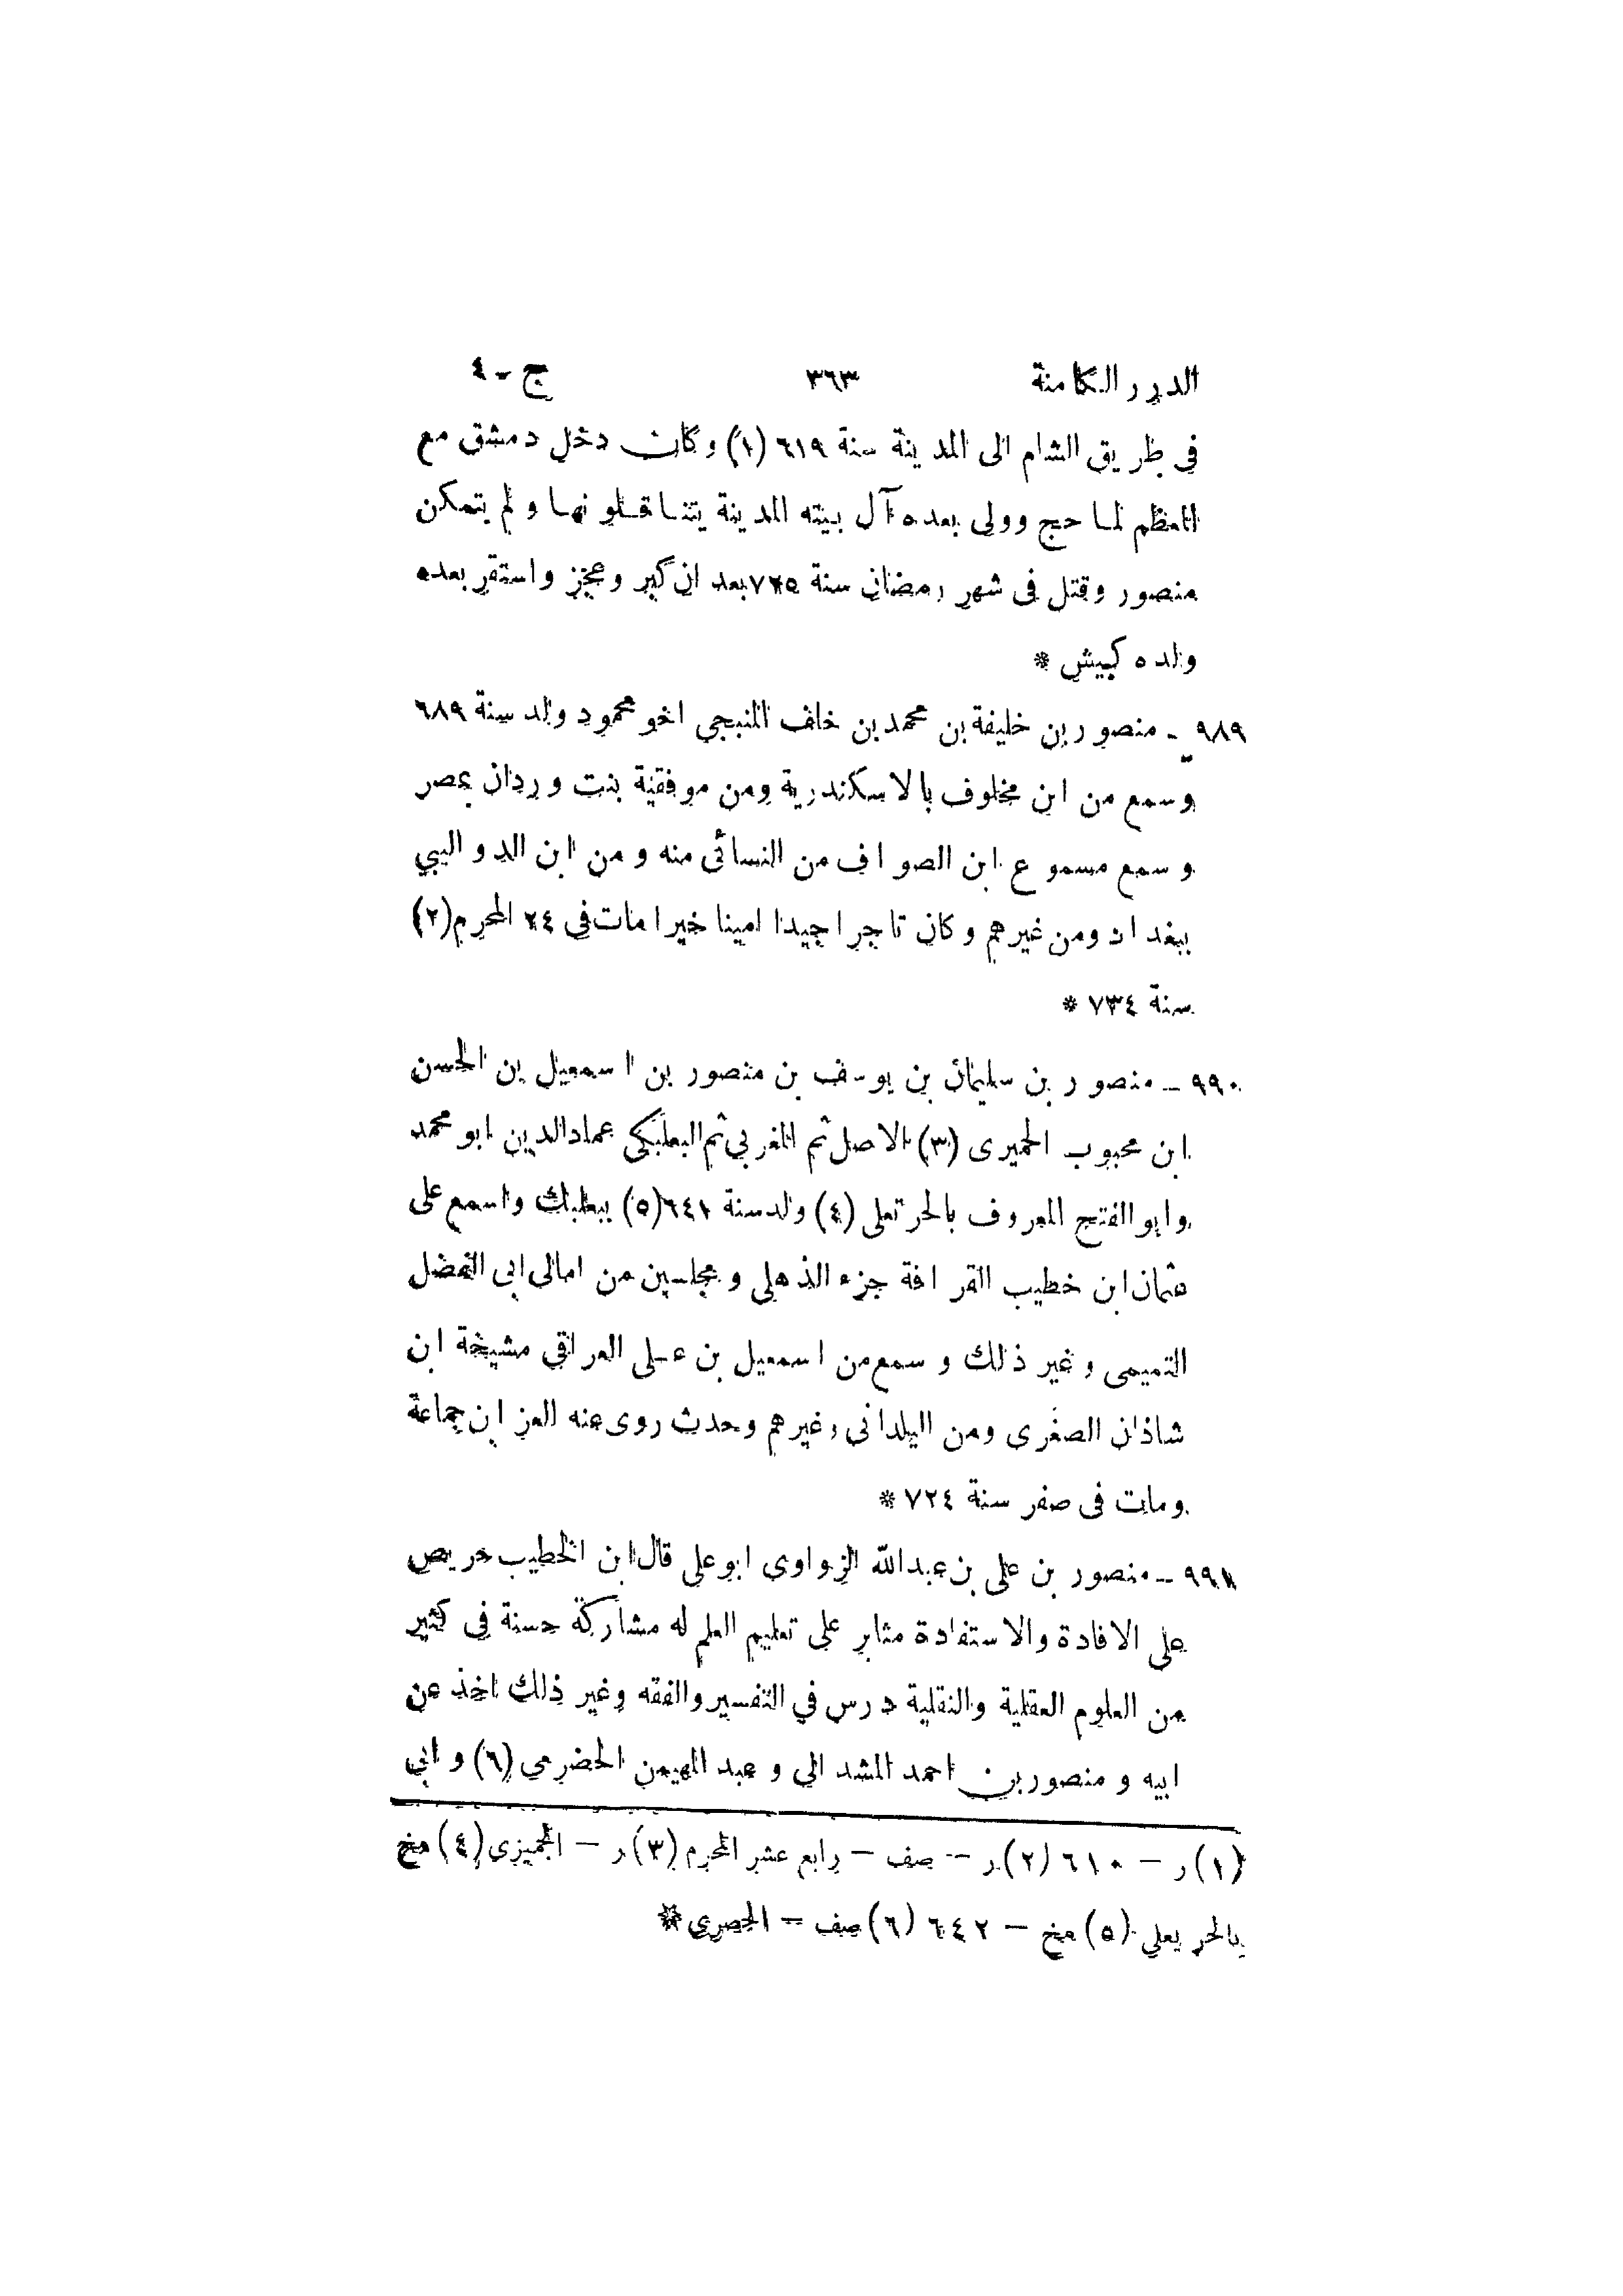 الدرر الكامنة ٣٦٣ ج - ٤
في طريق الشام الى المدينة سنة ٦١٩ (١) وكان دخل دمشق مع
المعظم لما حج وولى بعده آل بيته المدينة يتناقلونها ولم يتمكن
منصور وقتل فى شهر رمضان سنة ٧٢٥ بعد ان كبر وعجز واستقر بعده
ولده كبيش *
٩٨٩ - منصور بن خليفة بن محمد بن خلف المنبجي اخو محمود ولد سنة ٦٨٩
وسمع من ابن مخلوف بالاسكندرية ومن موفقية بنت وردان بمصر
وسمع مسموع ابن الصواف من النسائى منه ومن ابن الدواليبي
ببغداد ومن غيرهم وكان تاجرا جيدا امينا خيرا مات فى ٢٤ المحرم (٢)
سنة ٧٣٤ *
٩٩٠ - منصور بن سليمان بن يوسف بن منصور بن اسمعيل بن الحسن
ابن محبوب الحميرى (٣) الاصل ثم المغربي ثم البعلبكى عماد الدين ابو محمد
وابو الفتح المعروف بالحرتعلى (٤) ولد سنة ٦٤١ (٥) ببعلبك واسمع على
عثمان ابن خطيب القرافة جزء الذهلى ومجلسين من امالى ابى الفضل
التميمى وغير ذلك وسمع من اسمعيل بن على العراقي مشيخة ابن
شاذان الصغرى ومن اليلدانى وغيرهم وحدث روى عنه العز ابن جماعة
ومات فى صفر سنة ٧٢٤ *
٩٩١ - منصور بن على بن عبدالله الزواوى ابو على قال ابن الخطيب حريص
على الافادة والاستفادة مثابر على تعليم العلم له مشاركة حسنة فى كثير
من العلوم العقلية والنقلية درس في التفسير والفقه وغير ذلك اخذ عن
ابيه ومنصور بن احمد المشدالى وعبد المهيمن الحضرمي (٦) وابي
(١) ر - ٦١٠ (٢) ر - صف - رابع عشر المحرم (٣) ر - الجميزى (٤) مخ
بالحر يعلى (٥) مخ - ٦٤٢ (٦) صف - الحصري *